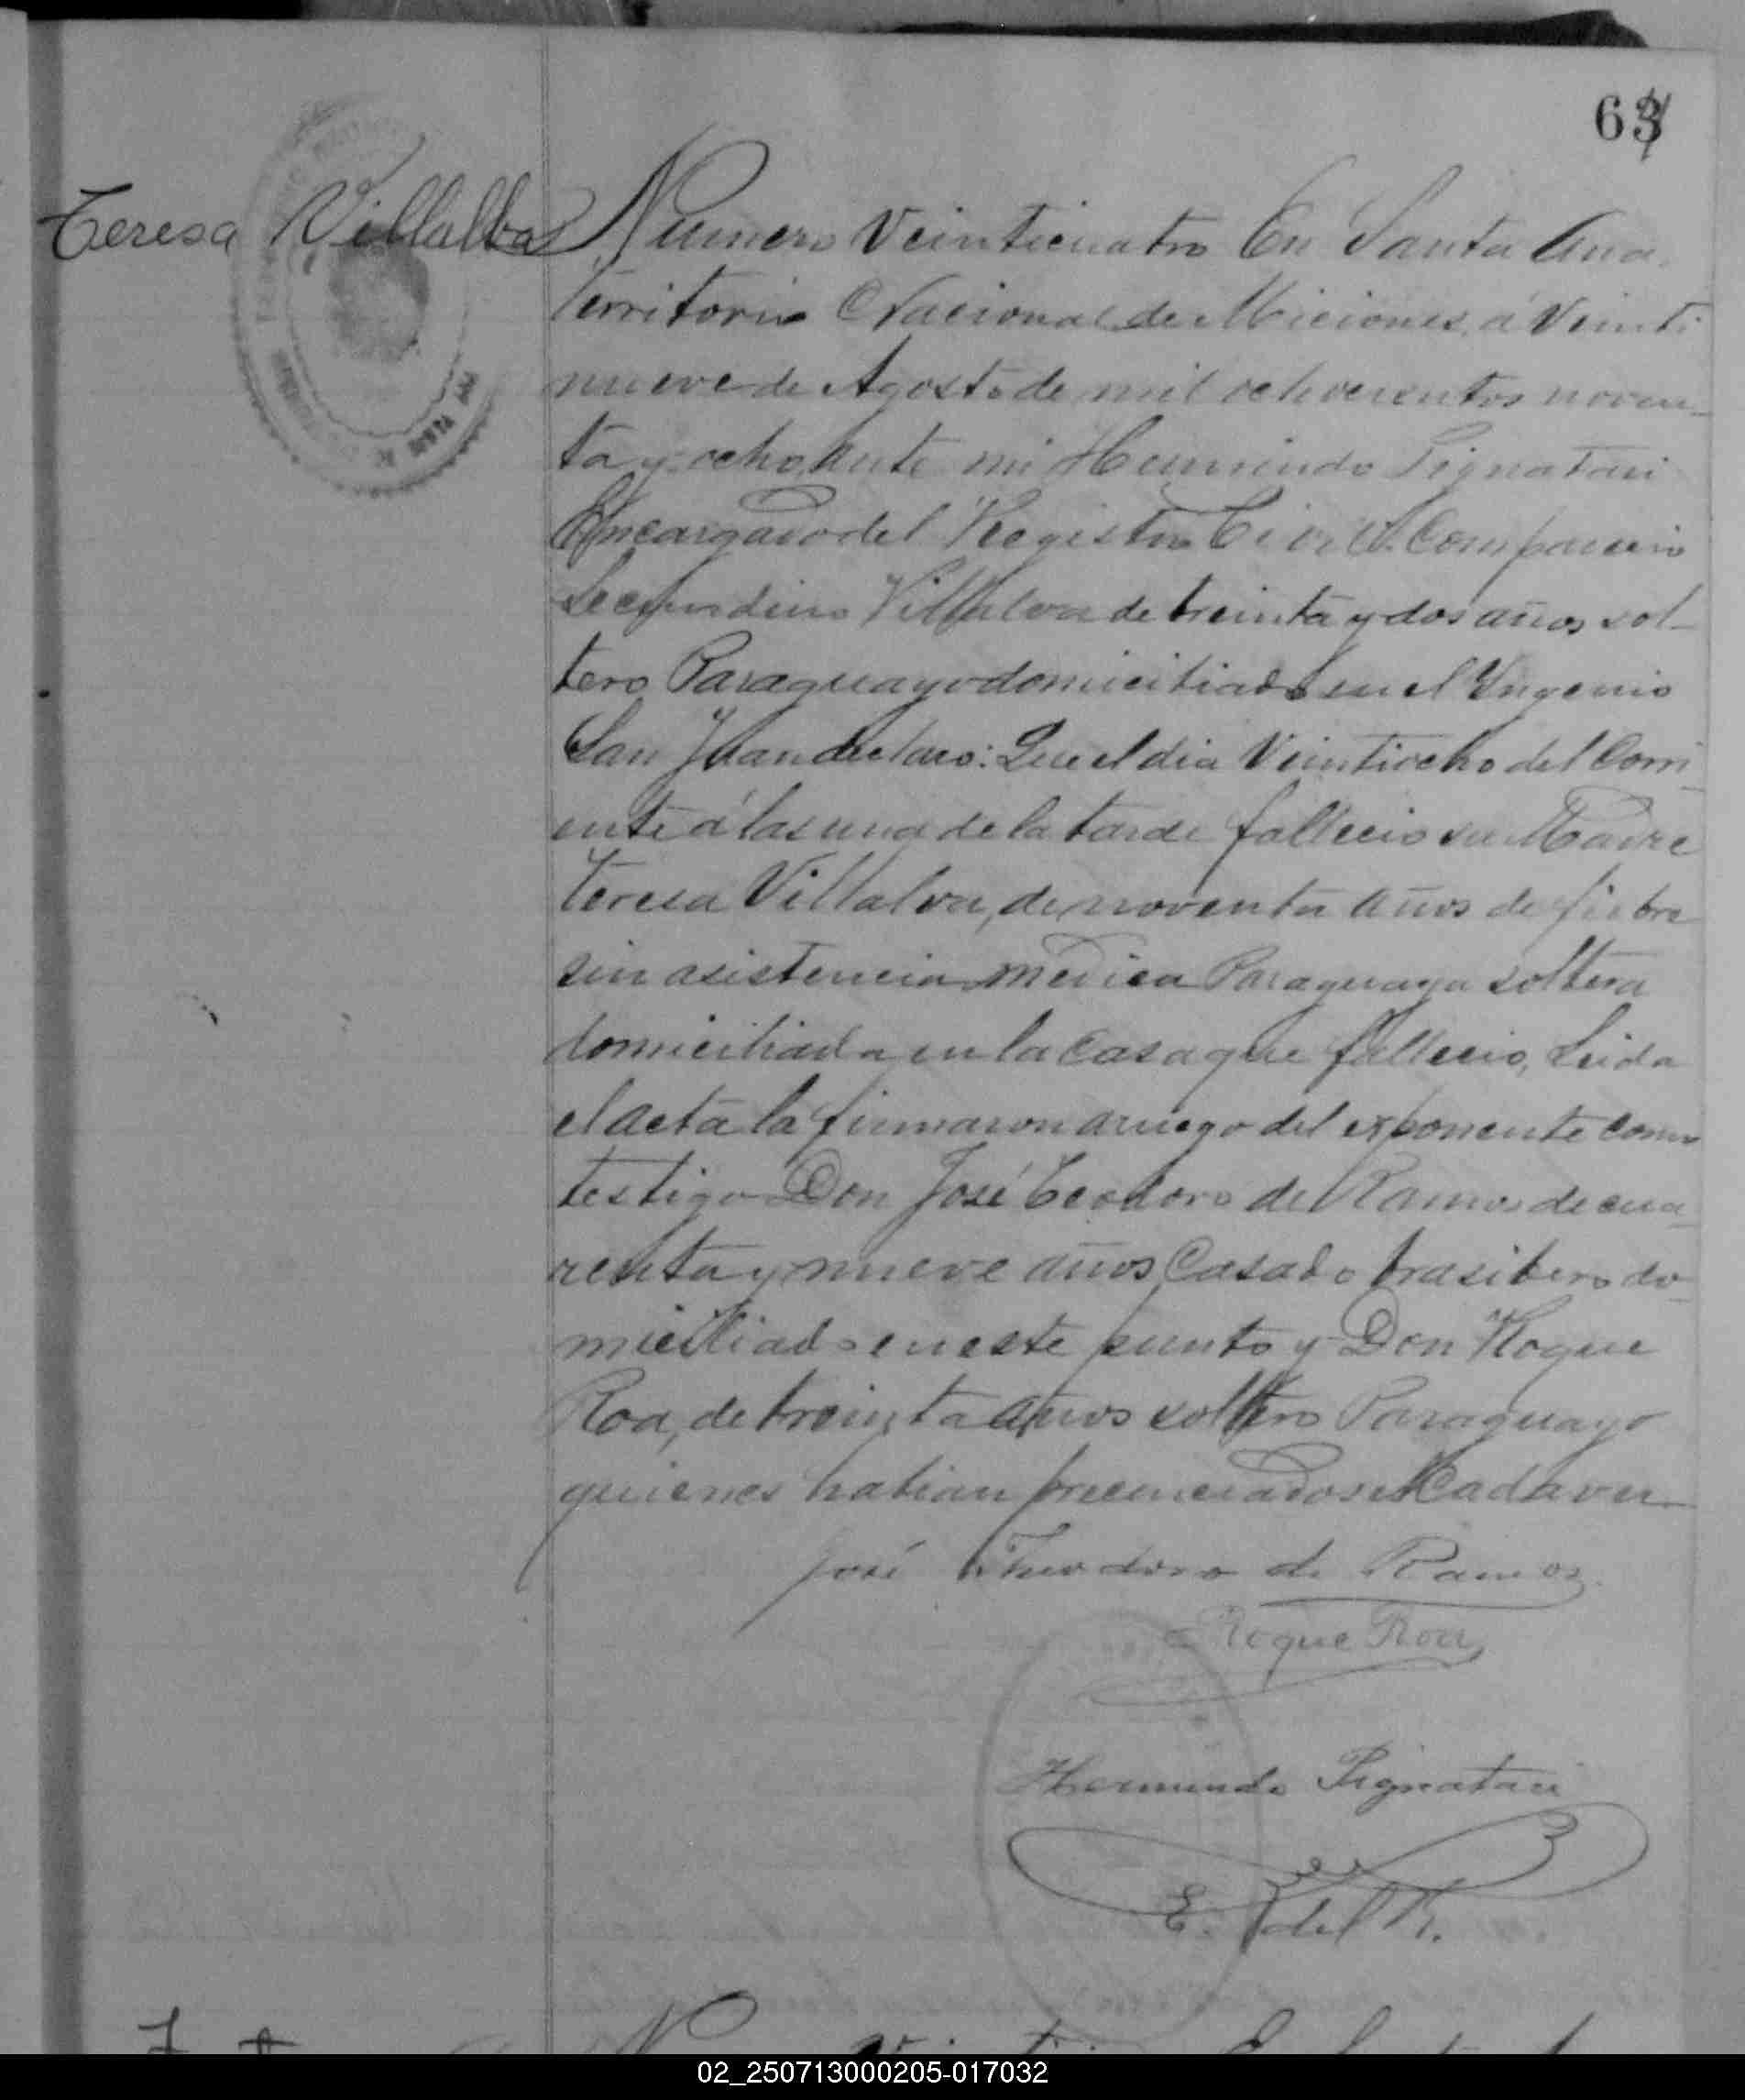 63
Teresa Villalba
Numero Veinticuatro En Santa Ana
Territorio Nacional de Miciones, á Veinti
nueve de Agosto de mil ochocientos noven_
ta y ocho, ante mi Hermindo Pignatari
Encargado del Registro Civil. Comparecio
Secundino Villalva de treinta y dos años sol_
tero Paraguayo domiciliado en el Yngenio
San Juan declaro: Que el dia Veintiocho del Corri_
ente á las una de la tarde fallecio su Madre
Teresa Villalva, de noventa años de fiebre
sin asistencia medica Paraguaya soltera
domiciliada en la casa que fallecio, Leida
el acta la firmaron a ruego del exponente como
testigo Don José Teodoro de Ramos de cua_
renta y nueve años Casado brasilero do_
miciliado en este punto y Don Roque
Roa, de treinta años soltero Paraguayo
quienes habian precenciado el Cadaver
José Theodoro de Ramos
Roque Roa
Hermindo Pignatari
E. del R.
02_250713000205-017032